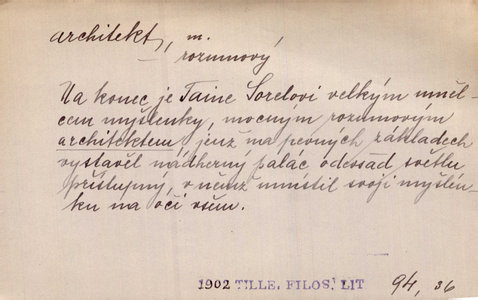 architekt, m.
rozumový
Na konec je Taine Sorelovi velkým uměl-
cem myšlenky, mocným rozumovým
architektem, jenž na pevných základech
vystavěl nádherný palác odevšad světlu
přístupný, v němž umístil svoji myšlén-
ku na oči všem.
1902 TILLE, FILOS. LIT 94, 36